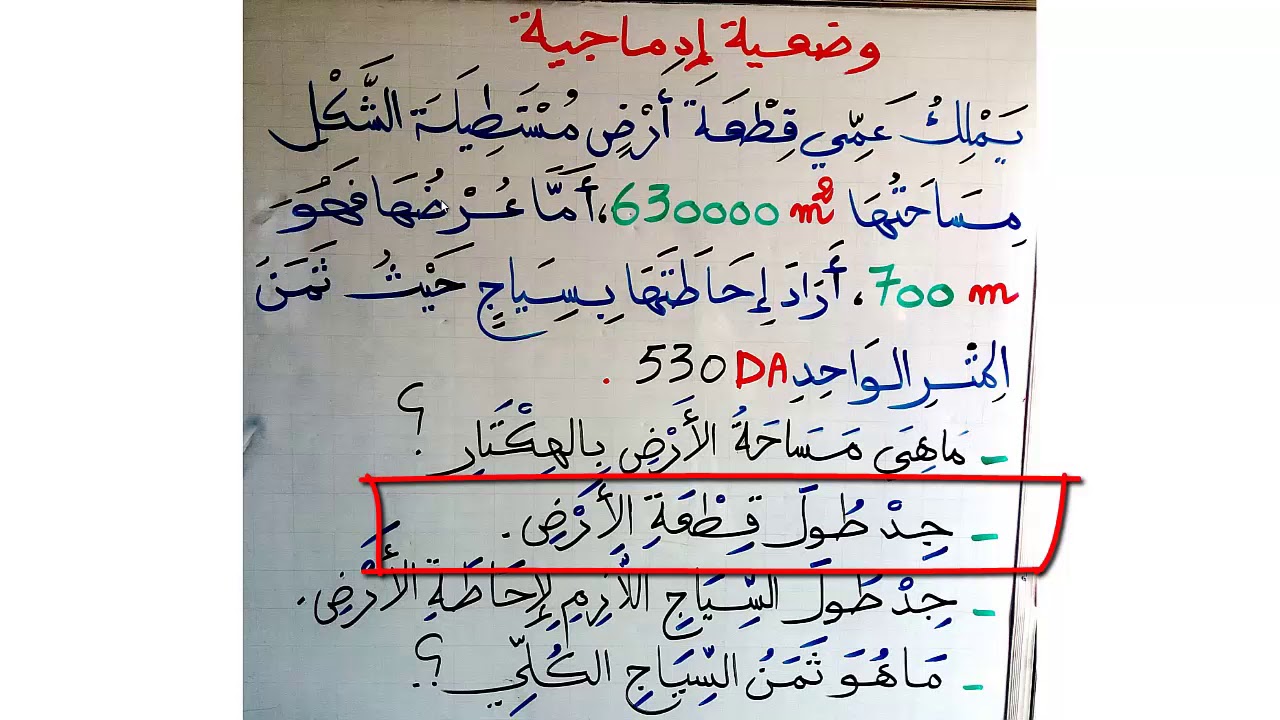 وضعية إدماجية
يَمْلِكُ عَمِّي قِطْعَةَ أَرْضٍ مُسْتَطِيلَةَ الشَّكْلِ
مِسَاحَتُهَا 630000 m²، أَمَّا عُرْضُهَا فَهُوَ
700 m، أَرَادَ إِحَاطَتَهَا بِسِيَاجٍ حَيْثُ ثَمَنُ
المِتْرِ الوَاحِدِ 530 DA .
- مَاهِيَ مَسَاحَةُ الأَرْضِ بِالهِكْتَارِ ؟
- جِدْ طُولَ قِطْعَةِ الأَرْضِ .
- جِدْ طُولَ السِّيَاجِ اللَّازِمِ لِإِحَاطَةِ الأَرْضِ .
- مَا هُوَ ثَمَنُ السِّيَاجِ الكُلِّي ؟